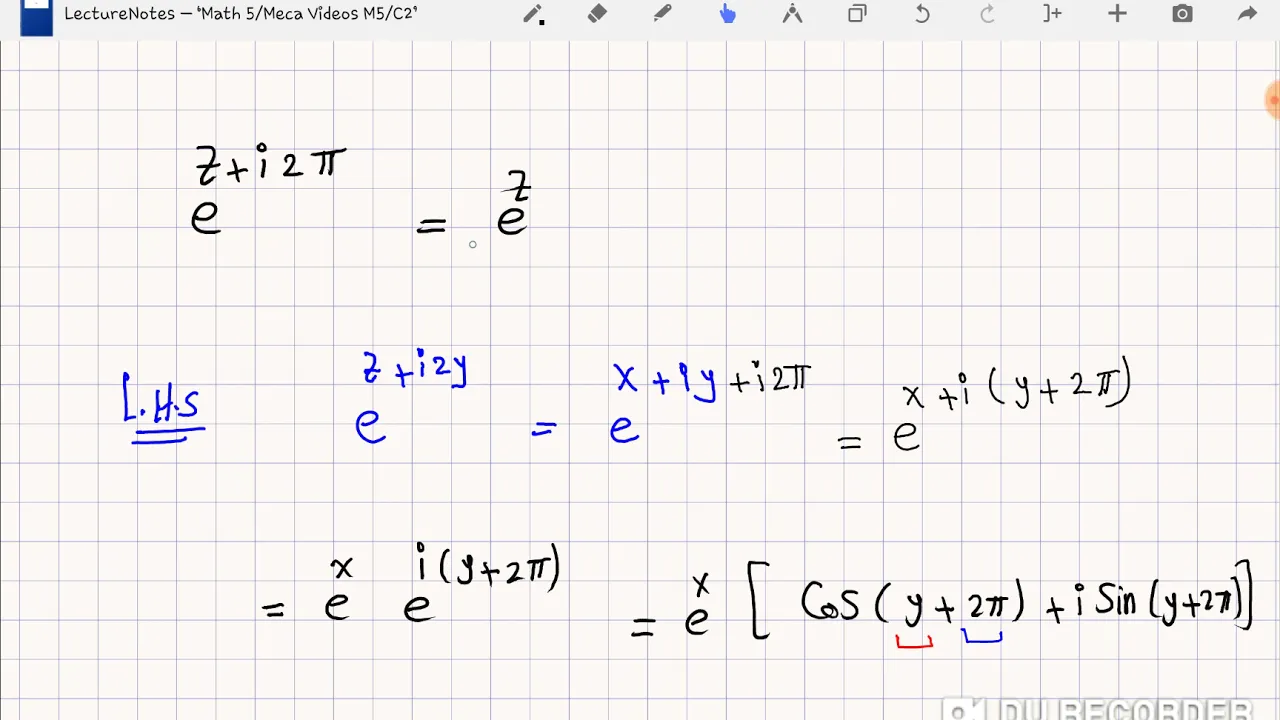 LectureNotes – ‘Math 5/Meca Videos M5/C2’
e^{z+i2π} = e^{z}
L.H.S e^{z+i2y} = e^{x+iy+i2π} = e^{x+i(y+2π)}
= e^{x} e^{i(y+2π)} = e^{x} [ Cos(y+2π) + i Sin(y+2π)]
DU RECORDER